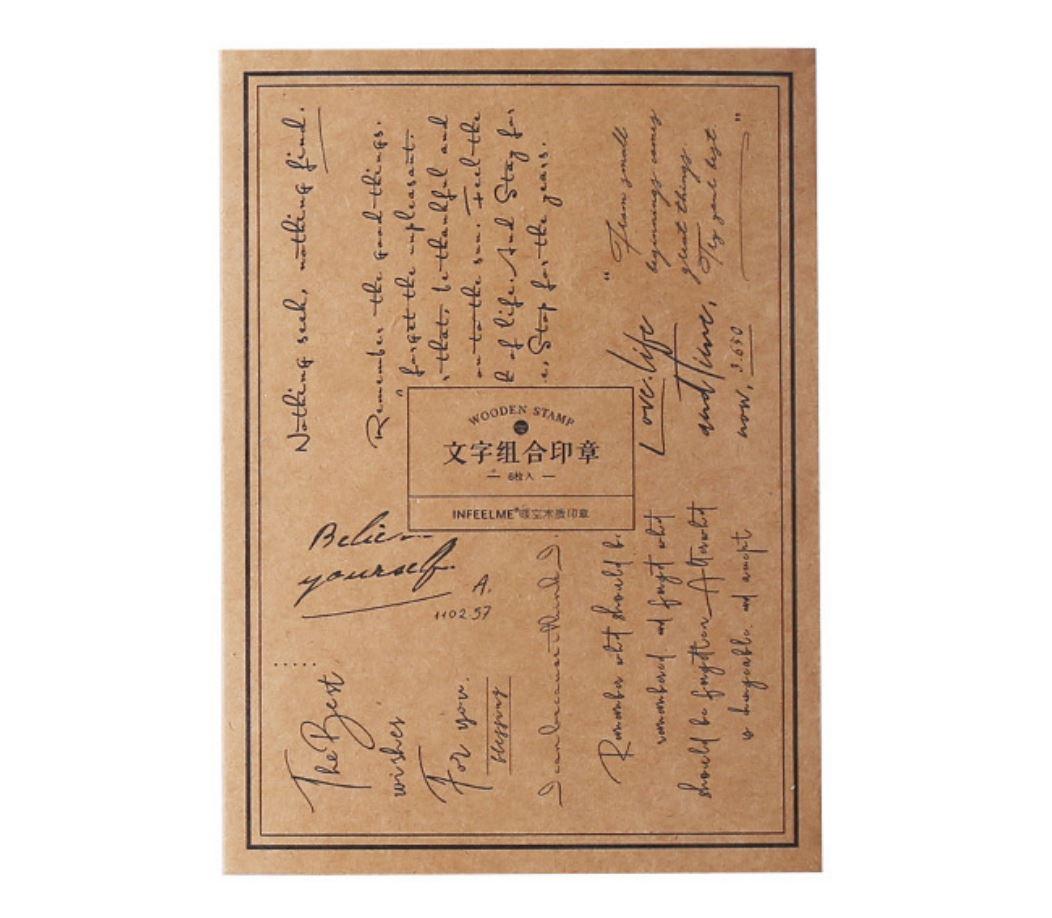 Nothing seek, nothing find.
Remember the good things.
forget the unpleasant.
that, be thankful and
on to the sun. Feel the
of life. And Stay for
Stop for the years.
"From small
beginnings comes
great things.
Try your best."
Love. life
and Time,
now, 3.630
WOODEN STAMP
文字组合印章
— 6枚入 —
INFEELME®暖空木质印章
Believ
yourself.
A.
1102.57
.....
The Best
wishes
For you.
blessing
I can because i think I
Remember what should b
remembered, and forget what
should be forgotten. Alter what
is changeable, and accept